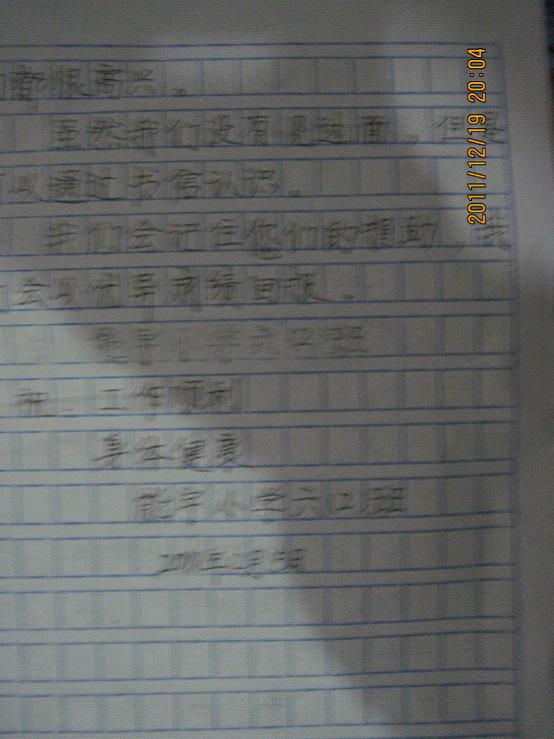 都很高兴。
虽然我们没有见过面，但是
可以通过书信认识。
我们会记住您们的援助，我
们会以优异成绩回报。
小学六(2)班
祝：工作顺利
身体健康
小学六(2)班
2011/12/19 20:04